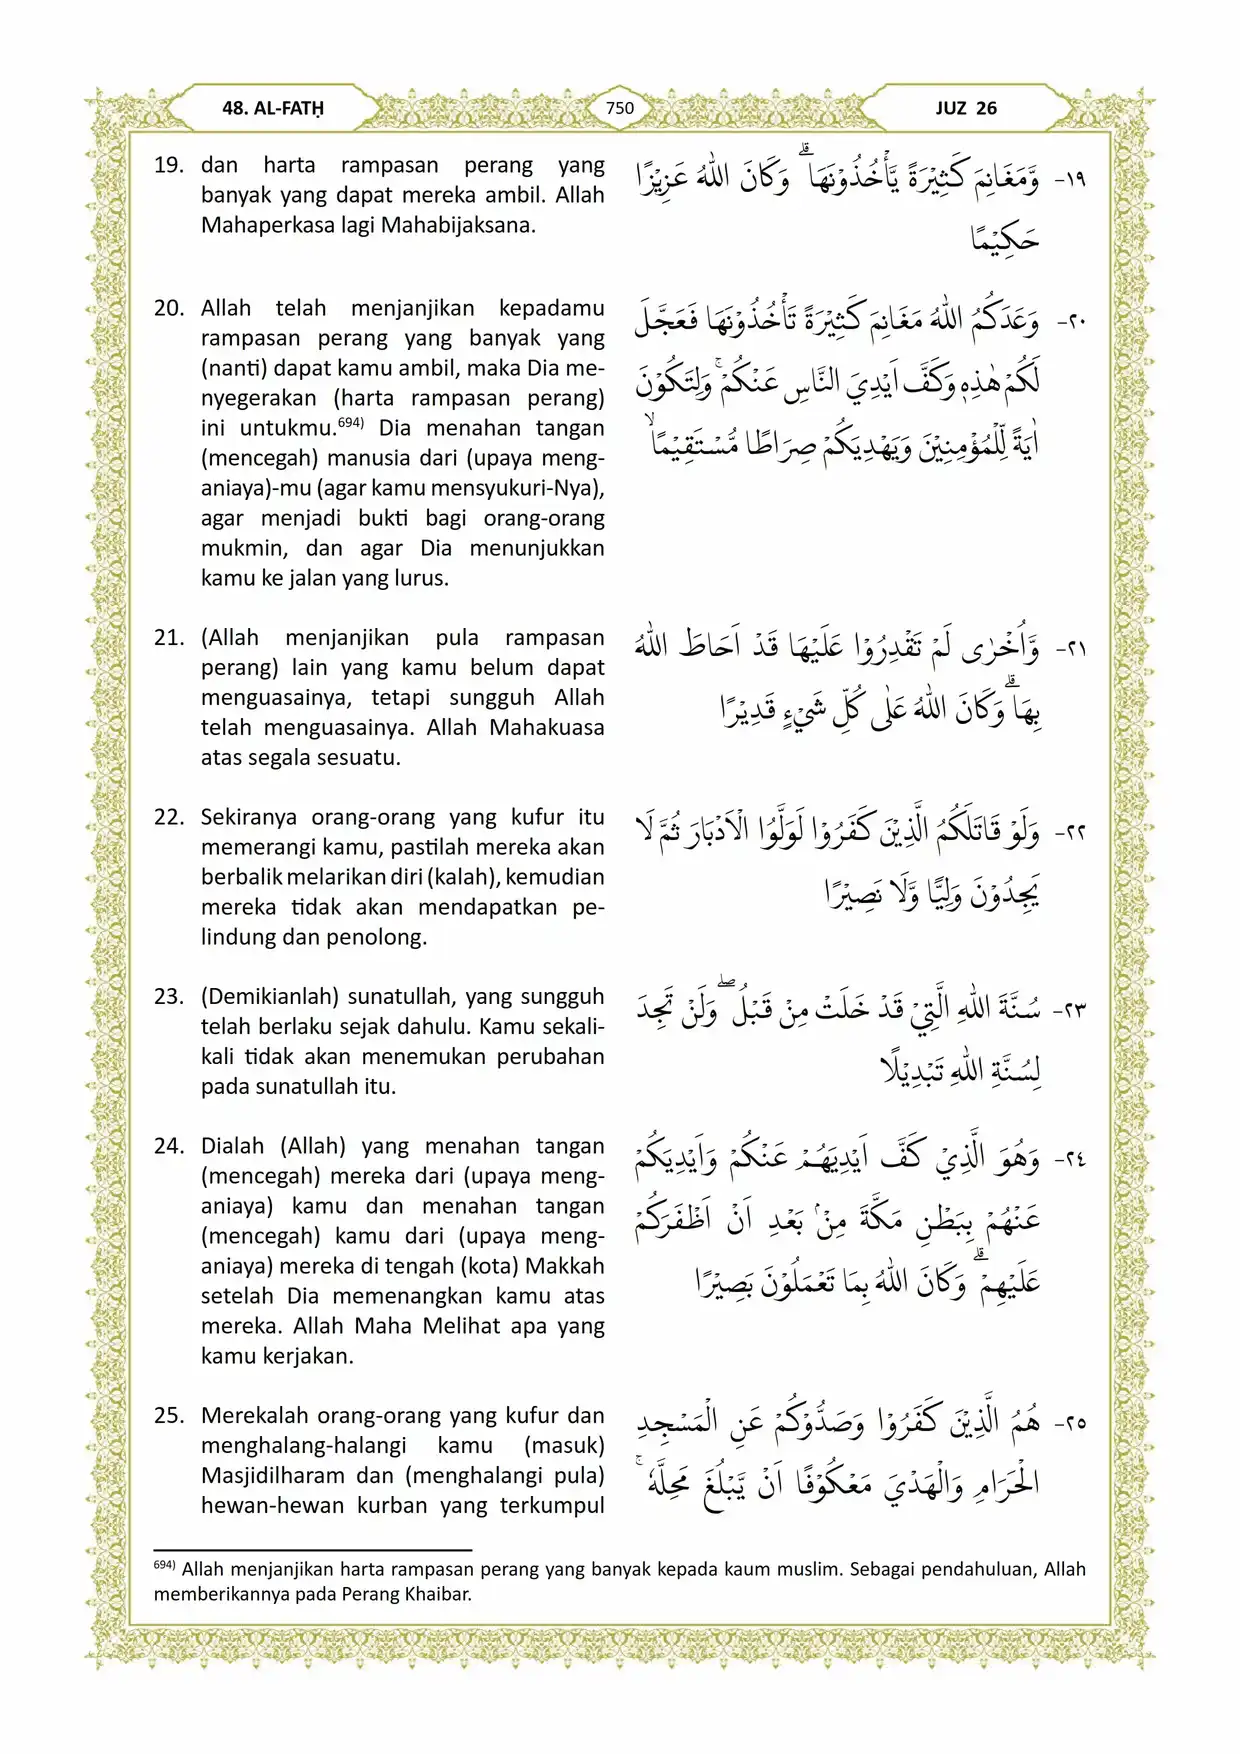 48. AL-FATḤ
750
JUZ 26
19. dan harta rampasan perang yang
banyak yang dapat mereka ambil. Allah
Mahaperkasa lagi Mahabijaksana.
١٩- وَّمَغَانِمَ كَثِيْرَةً يَّأْخُذُوْنَهَاۗ وَكَانَ اللّٰهُ عَزِيْزًا
حَكِيْمًا
20. Allah telah menjanjikan kepadamu
rampasan perang yang banyak yang
(nanti) dapat kamu ambil, maka Dia me-
nyegerakan (harta rampasan perang)
ini untukmu.⁶⁹⁴⁾ Dia menahan tangan
(mencegah) manusia dari (upaya meng-
aniaya)-mu (agar kamu mensyukuri-Nya),
agar menjadi bukti bagi orang-orang
mukmin, dan agar Dia menunjukkan
kamu ke jalan yang lurus.
٢٠- وَعَدَكُمُ اللّٰهُ مَغَانِمَ كَثِيْرَةً تَأْخُذُوْنَهَا فَعَجَّلَ
لَكُمْ هٰذِهٖ وَكَفَّ اَيْدِيَ النَّاسِ عَنْكُمْۚ وَلِتَكُوْنَ
اٰيَةً لِّلْمُؤْمِنِيْنَ وَيَهْدِيَكُمْ صِرَاطًا مُّسْتَقِيْمًاۙ
21. (Allah menjanjikan pula rampasan
perang) lain yang kamu belum dapat
menguasainya, tetapi sungguh Allah
telah menguasainya. Allah Mahakuasa
atas segala sesuatu.
٢١- وَّاُخْرٰى لَمْ تَقْدِرُوْا عَلَيْهَا قَدْ اَحَاطَ اللّٰهُ
بِهَاۗ وَكَانَ اللّٰهُ عَلٰى كُلِّ شَيْءٍ قَدِيْرًا
22. Sekiranya orang-orang yang kufur itu
memerangi kamu, pastilah mereka akan
berbalik melarikan diri (kalah), kemudian
mereka tidak akan mendapatkan pe-
lindung dan penolong.
٢٢- وَلَوْ قَاتَلَكُمُ الَّذِيْنَ كَفَرُوْا لَوَلَّوُا الْاَدْبَارَ ثُمَّ لَا
يَجِدُوْنَ وَلِيًّا وَّلَا نَصِيْرًا
23. (Demikianlah) sunatullah, yang sungguh
telah berlaku sejak dahulu. Kamu sekali-
kali tidak akan menemukan perubahan
pada sunatullah itu.
٢٣- سُنَّةَ اللّٰهِ الَّتِيْ قَدْ خَلَتْ مِنْ قَبْلُۖ وَلَنْ تَجِدَ
لِسُنَّةِ اللّٰهِ تَبْدِيْلًا
24. Dialah (Allah) yang menahan tangan
(mencegah) mereka dari (upaya meng-
aniaya) kamu dan menahan tangan
(mencegah) kamu dari (upaya meng-
aniaya) mereka di tengah (kota) Makkah
setelah Dia memenangkan kamu atas
mereka. Allah Maha Melihat apa yang
kamu kerjakan.
٢٤- وَهُوَ الَّذِيْ كَفَّ اَيْدِيَهُمْ عَنْكُمْ وَاَيْدِيَكُمْ
عَنْهُمْ بِبَطْنِ مَكَّةَ مِنْۢ بَعْدِ اَنْ اَظْفَرَكُمْ
عَلَيْهِمْۗ وَكَانَ اللّٰهُ بِمَا تَعْمَلُوْنَ بَصِيْرًا
25. Merekalah orang-orang yang kufur dan
menghalang-halangi kamu (masuk)
Masjidilharam dan (menghalangi pula)
hewan-hewan kurban yang terkumpul
٢٥- هُمُ الَّذِيْنَ كَفَرُوْا وَصَدُّوْكُمْ عَنِ الْمَسْجِدِ
الْحَرَامِ وَالْهَدْيَ مَعْكُوْفًا اَنْ يَّبْلُغَ مَحِلَّهٗۚ
⁶⁹⁴⁾ Allah menjanjikan harta rampasan perang yang banyak kepada kaum muslim. Sebagai pendahuluan, Allah
memberikannya pada Perang Khaibar.